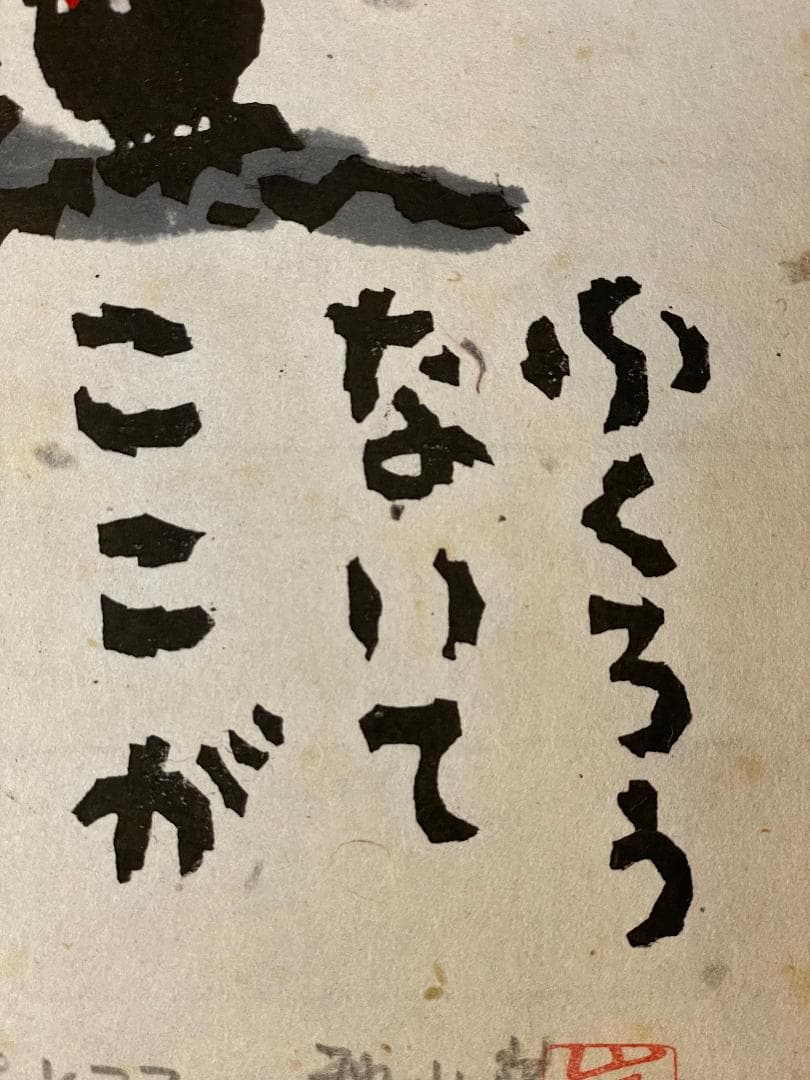 ふくろう
ないて
ここが